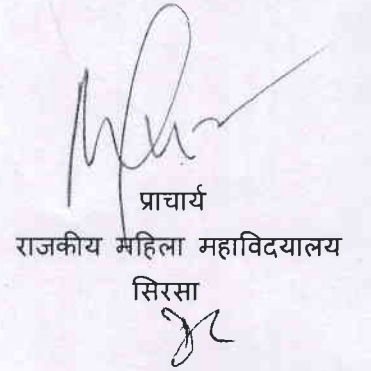 प्राचार्य
राजकीय महिला महाविदयालय
सिरसा